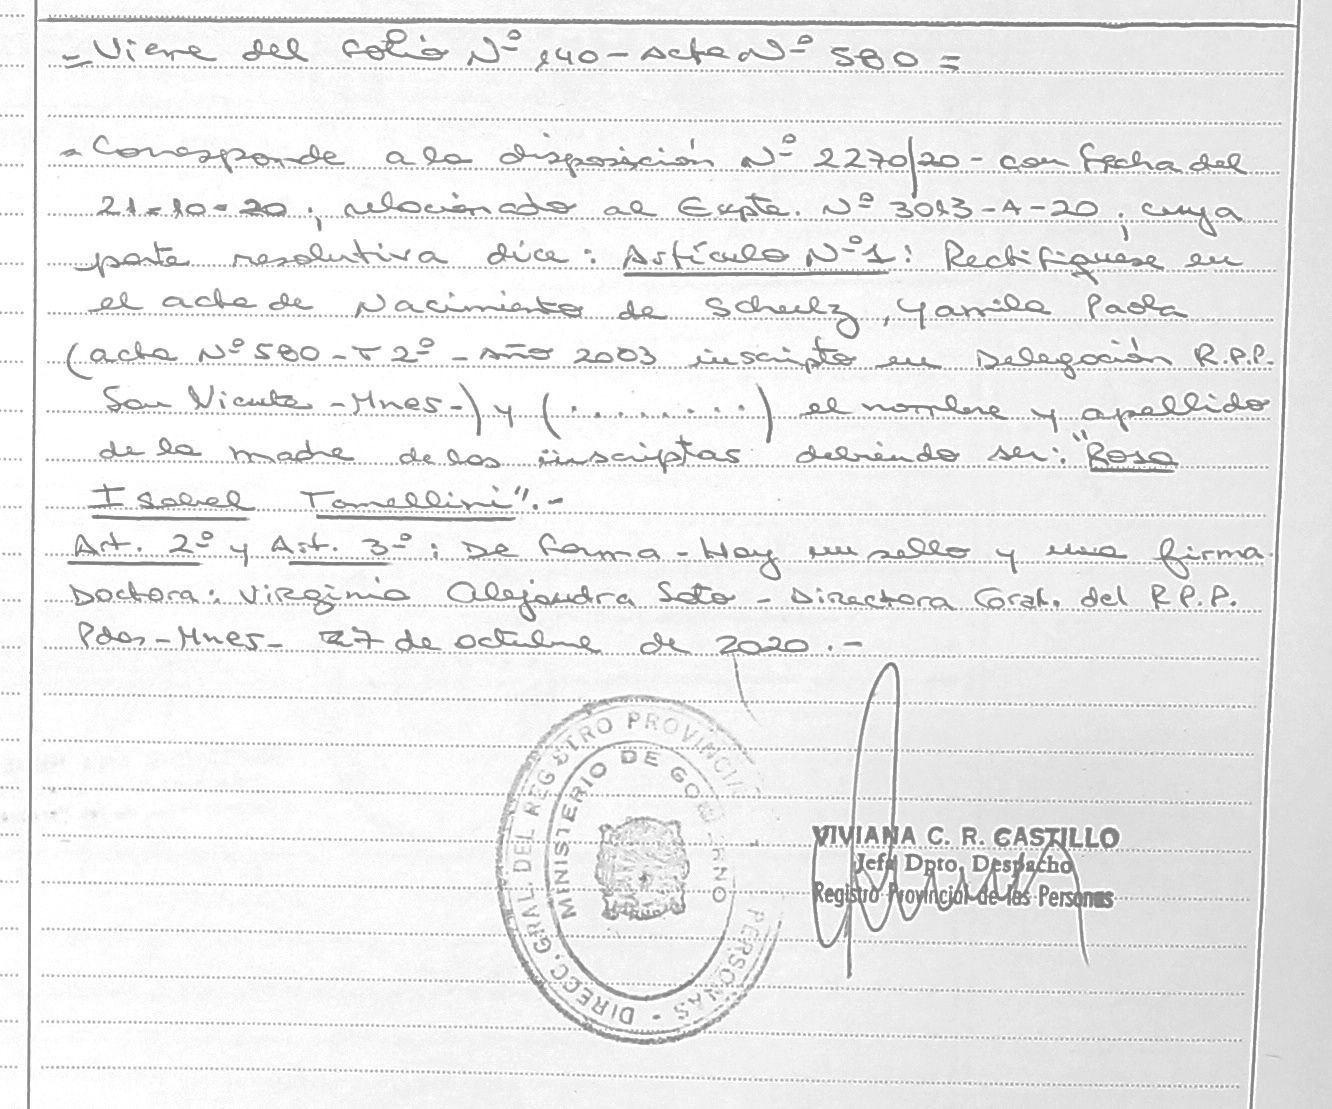 = Viene del folio Nº 140 - Acta Nº 580 =
- Corresponde a la disposición Nº 2270/20 - con fecha del
21-10-20; relacionado al Expte. Nº 3013-A-20; cuya
parte resolutiva dice: Artículo Nº 1: Rectifíquese en
el acta de Nacimiento de Schulz, Yamila Paola
(acta Nº 580 - T 2º - Año 2003 inscripto en Delegación R.P.P.
San Vicente - Mnes -) y (........) el nombre y apellido
de la madre de las inscriptas debiendo ser: "Rosa
Isabel Tomellini". -
Art. 2º y Art. 3º: De forma - Hay un sello y una firma.
Doctora: Virginia Alejandra Soto - Directora Gral. del R.P.P.
Pdas - Mnes - 27 de octubre de 2020. -
DIRECC. GRAL. DEL REGISTRO PROVINCIAL PERSONAS -
MINISTERIO DE GOBIERNO
VIVIANA C. R. CASTILLO
Jefa Dpto. Despacho
Registro Provincial de las Personas